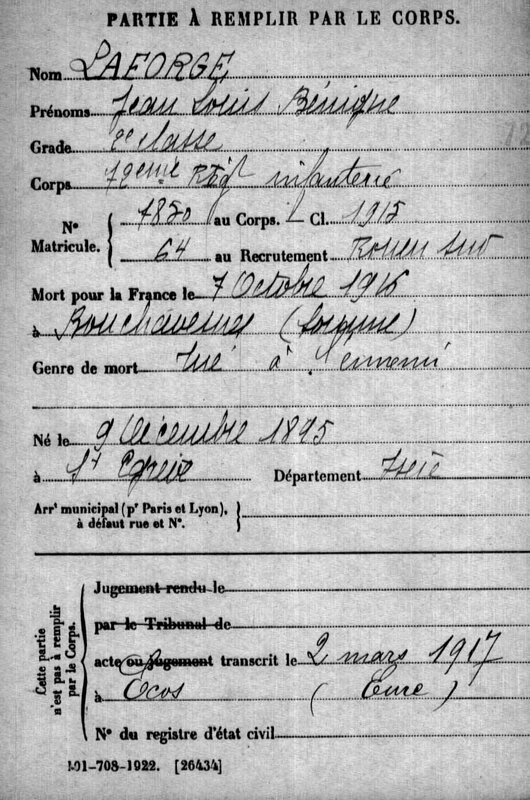 PARTIE À REMPLIR PAR LE CORPS.
Nom LAFORGE
Prénoms Jean Louis Bénigne
Grade 2e classe
Corps infanterie
N° Matricule. 7820 au Corps. Cl. 1915
64 au Recrutement Rouen Sud
Mort pour la France le 7 Octobre 1916
à Bouchavesnes (Somme)
Genre de mort Tué à l'ennemi
Né le 9 Décembre 1895
à St Egrève Département Isère
Arrt municipal (pr Paris et Lyon), à défaut rue et N°.
Cette partie n'est pas à remplir par le Corps.
Jugement rendu le
par le Tribunal de
acte ou jugement transcrit le 2 mars 1917
à Ecos (Eure)
N° du registre d'état civil
101-708-1922. [26434]